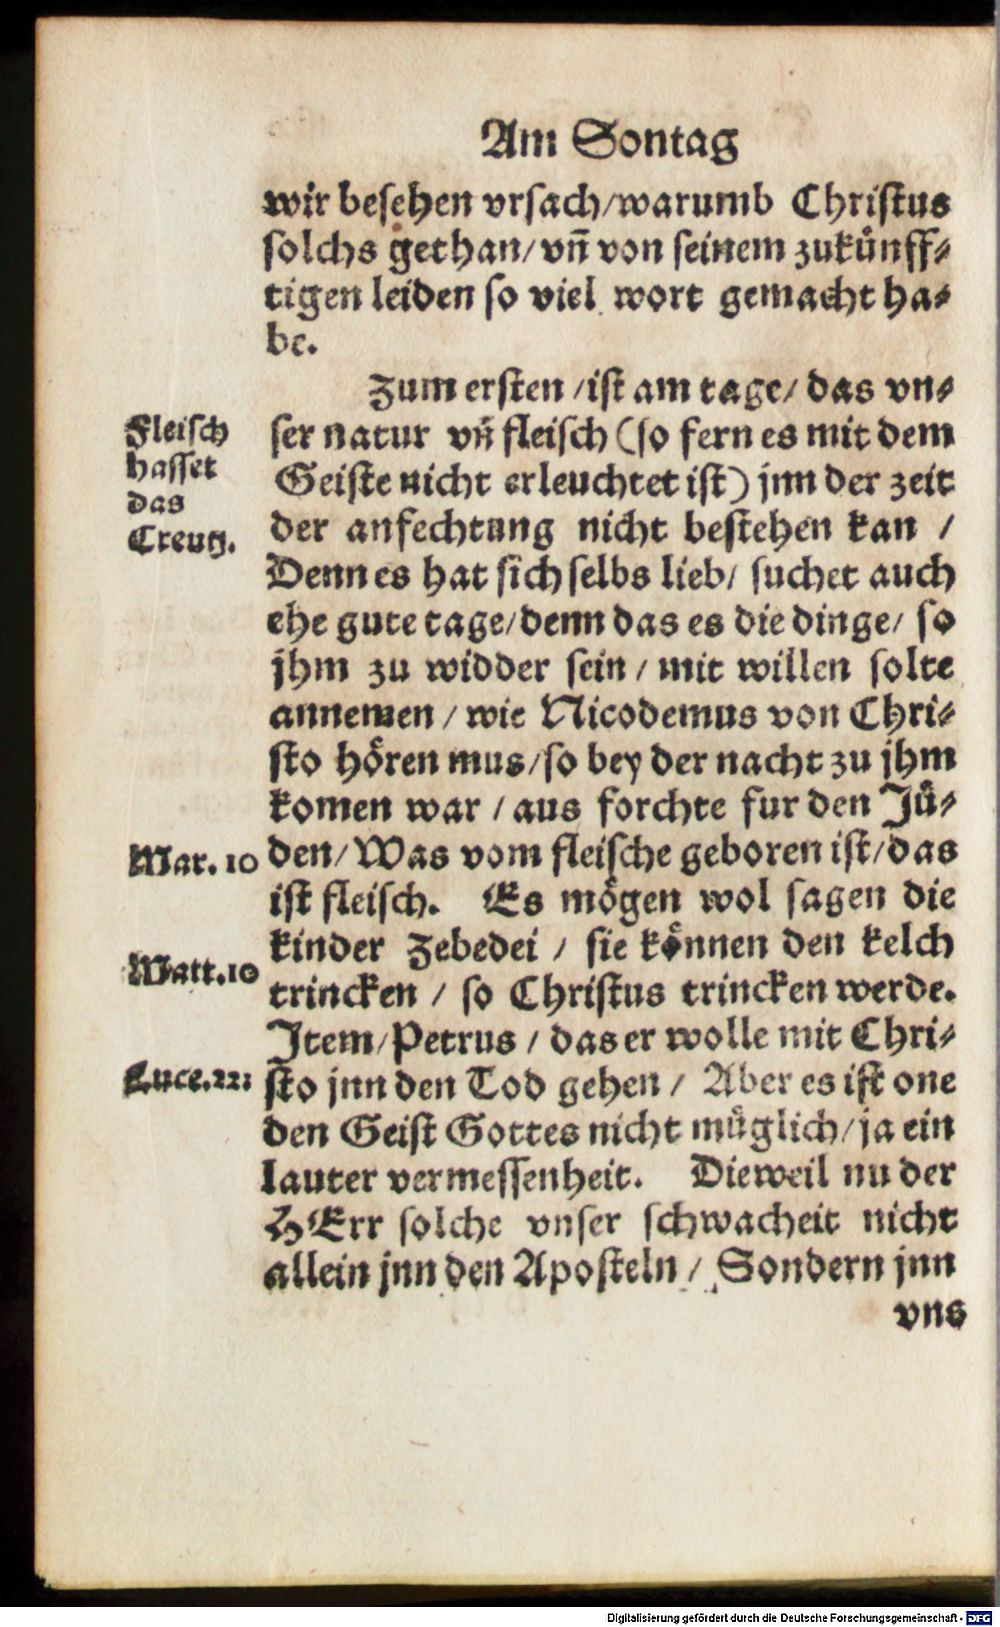 Am Sontag
wir besehen vrsach/warumb Christus
solchs gethan/vn̄ von seinem zukünff⸗
tigen leiden so viel wort gemacht ha⸗
be.
Zum ersten/ist am tage/das vn⸗
Fleisch
hasset
das
Creutz.
ser natur vn̄ fleisch (so fern es mit dem
Geiste nicht erleuchtet ist) jnn der zeit
der anfechtung nicht bestehen kan /
Denn es hat sich selbs lieb/ suchet auch
ehe gute tage/denn das es die dinge/ so
jhm zu widder sein / mit willen solte
annemen / wie Nicodemus von Chri⸗
sto hören mus/so bey der nacht zu jhm
komen war / aus forchte fur den Jü⸗
Mar. 10
den/Was vom fleische geboren ist/das
ist fleisch. Es mögen wol sagen die
kinder Zebedei / sie können den kelch
Matt.10
trincken / so Christus trincken werde.
Jtem/Petrus / das er wolle mit Chri⸗
Luce.22:
sto jnn den Tod gehen / Aber es ist one
den Geist Gottes nicht müglich/ja ein
lauter vermessenheit. Dieweil nu der
HErr solche vnser schwacheit nicht
allein jnn den Aposteln / Sondern jnn
vns
Digitalisierung gefördert durch die Deutsche Forschungsgemeinschaft - DFG